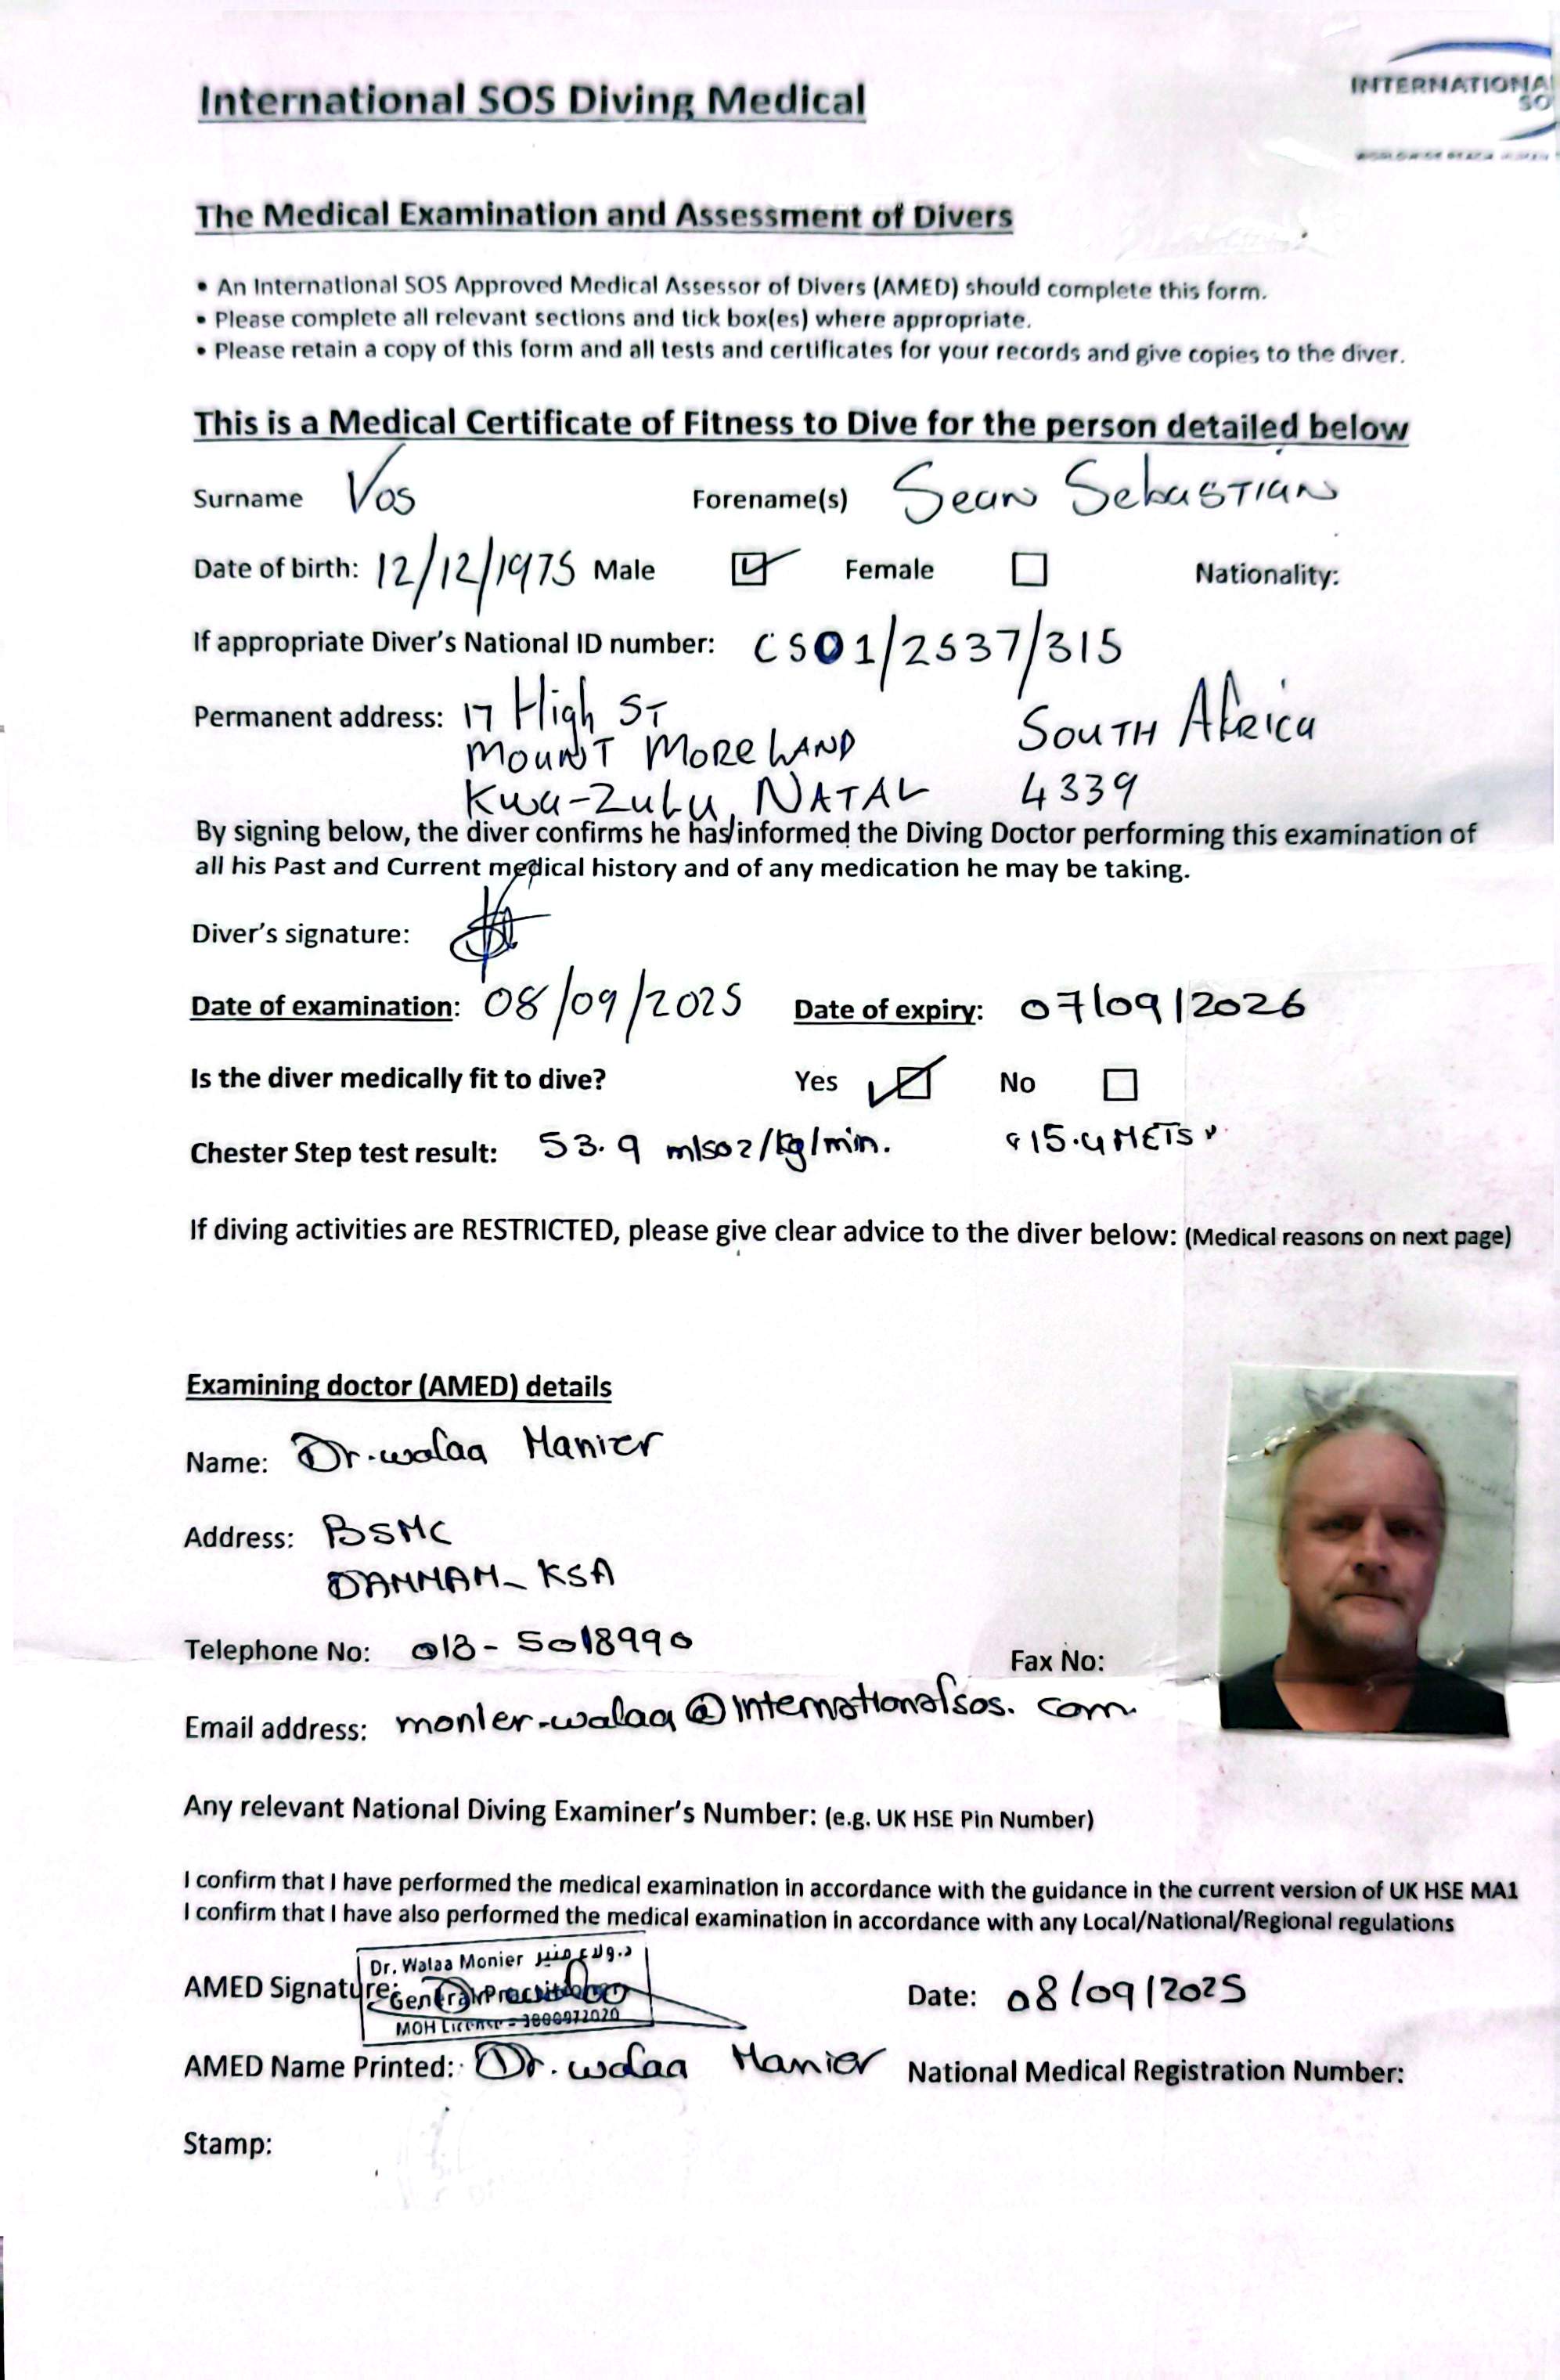 International SOS Diving Medical
INTERNATIONAL
SO
The Medical Examination and Assessment of Divers
• An International SOS Approved Medical Assessor of Divers (AMED) should complete this form.
• Please complete all relevant sections and tick box(es) where appropriate.
• Please retain a copy of this form and all tests and certificates for your records and give copies to the diver.
This is a Medical Certificate of Fitness to Dive for the person detailed below
Surname Vos Forename(s) Sean Sebastian
Date of birth: 12/12/1975 Male Female Nationality:
If appropriate Diver's National ID number: CS01/2537/315
Permanent address: 17 High ST South Africa
Mount Moreland
Kwa-Zulu Natal 4339
By signing below, the diver confirms he has informed the Diving Doctor performing this examination of
all his Past and Current medical history and of any medication he may be taking.
Diver's signature:
Date of examination: 08/09/2025 Date of expiry: 07/09/2026
Is the diver medically fit to dive? Yes No
Chester Step test result: 53.9 mlso2/kg/min. "15.4 METS"
If diving activities are RESTRICTED, please give clear advice to the diver below: (Medical reasons on next page)
Examining doctor (AMED) details
Name: Dr. walaa Manier
Address: BSMC
DAMMAM_ KSA
Telephone No: 013-5018990
Fax No:
Email address: monier.walaa@internationalsos.com
Any relevant National Diving Examiner's Number: (e.g. UK HSE Pin Number)
I confirm that I have performed the medical examination in accordance with the guidance in the current version of UK HSE MA1
I confirm that I have also performed the medical examination in accordance with any Local/National/Regional regulations
Dr. Walaa Monier د.ولاء منير
AMED Signature: General Practitioner Date: 08/09/2025
MOH License
AMED Name Printed: Dr. walaa Manier National Medical Registration Number:
Stamp: